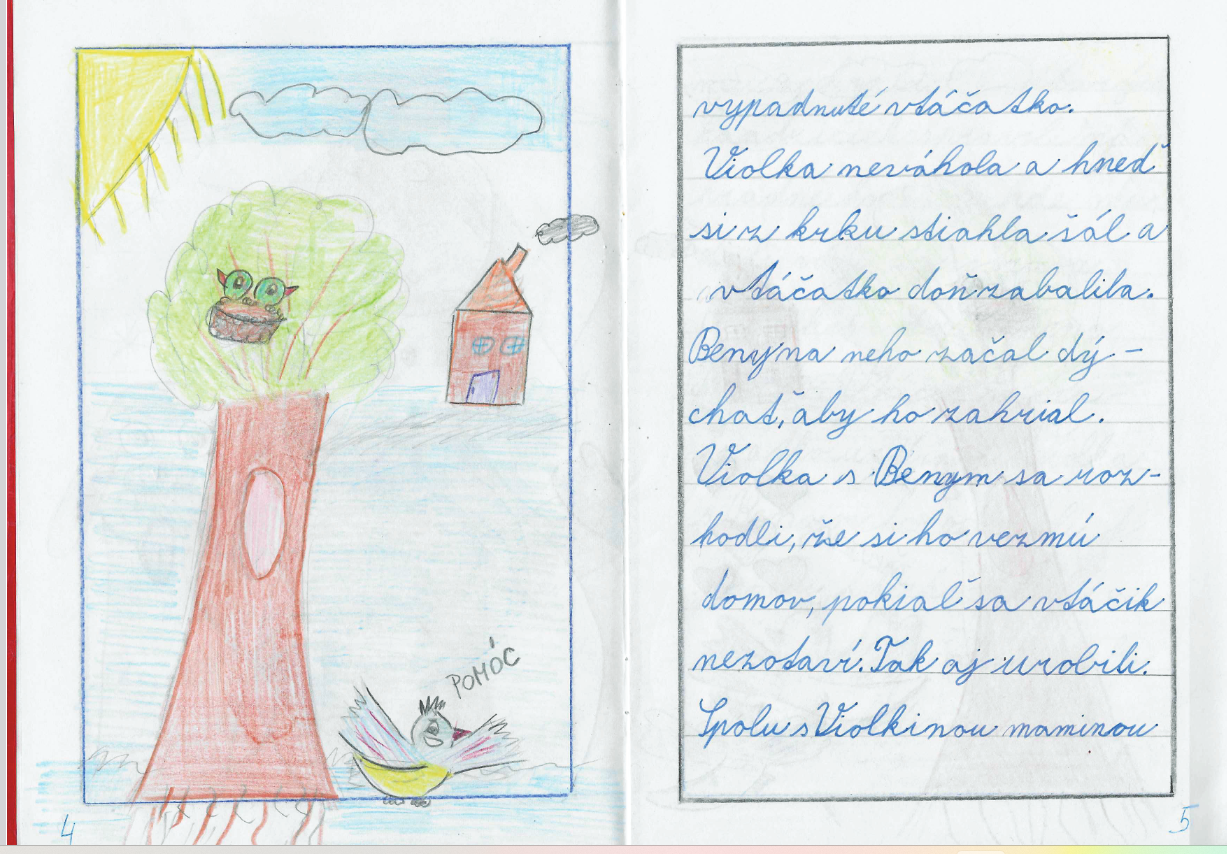 POMÓC
4
vypadnuté vtáčatko.
Violka neváhola a hneď
si z krku stiahla šál a
vtáčatko doň zabalila.
Beny na neho začal dý-
chať, aby ho zahrial.
Violka s Benym sa roz-
hodli, že si ho vezmú
domov, pokiaľ sa vtáčik
nezotaví. Tak aj urobili.
Spolu s Violkinou maminou
5